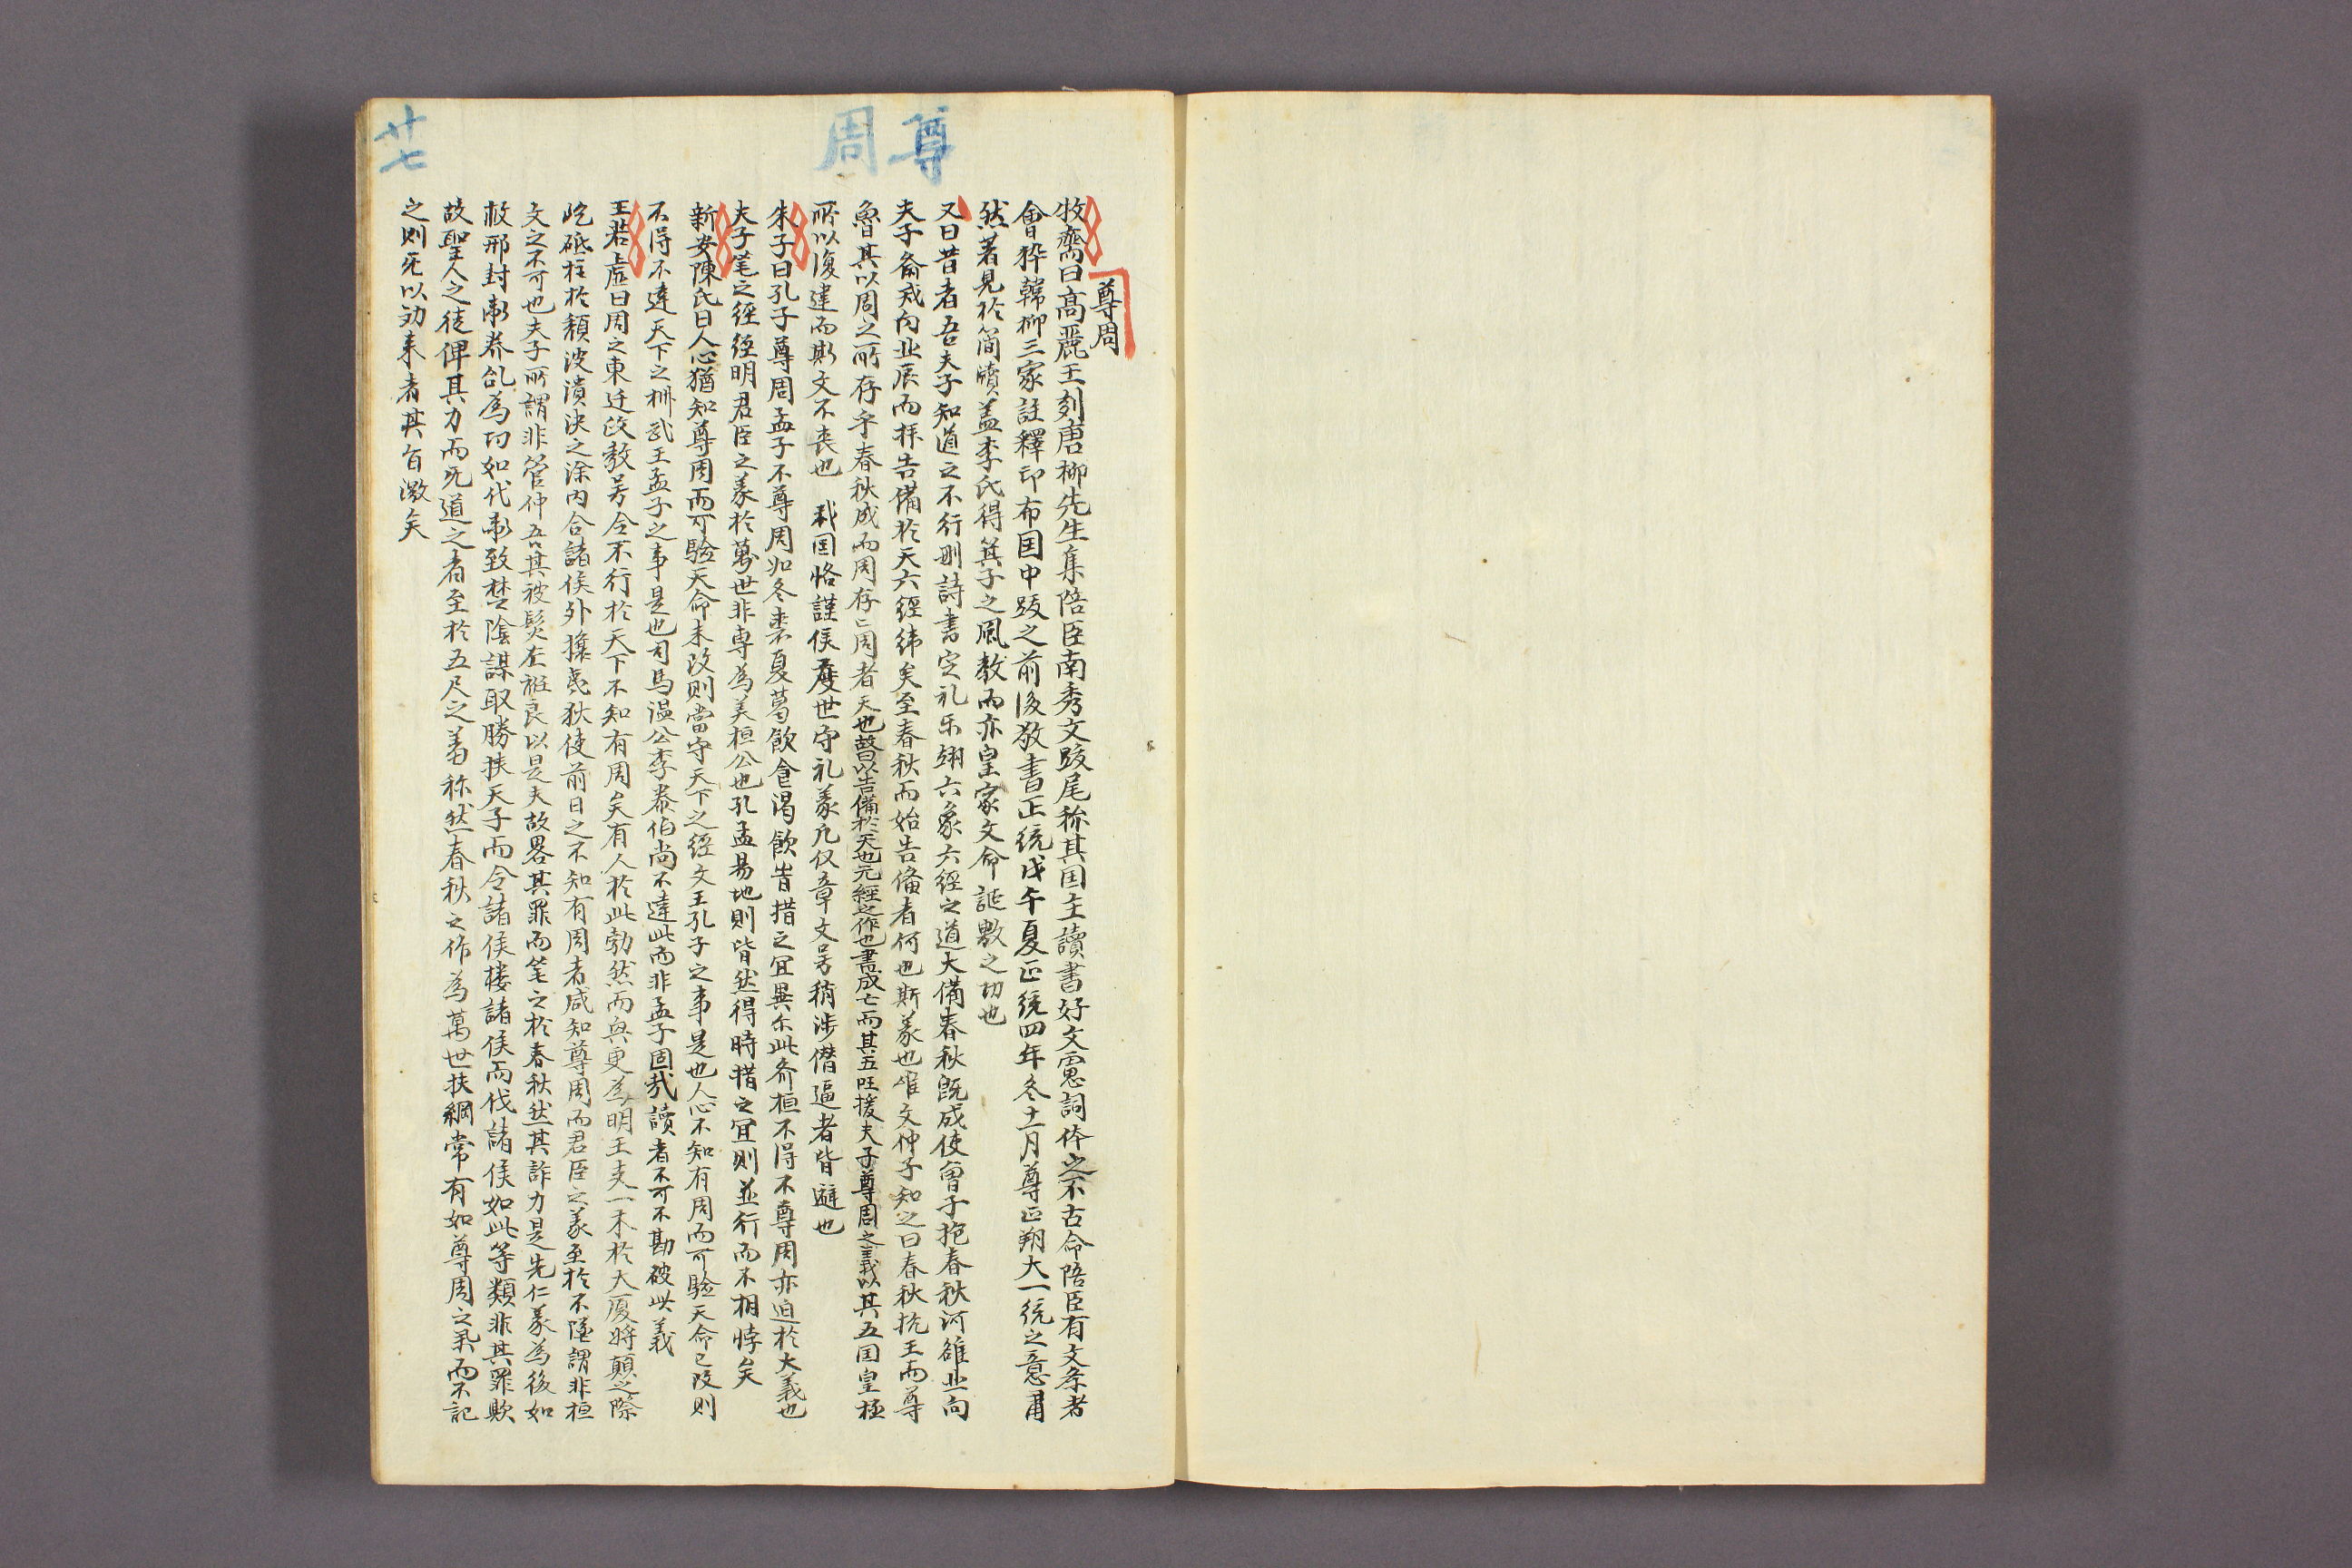 尊周
廿七
尊周
牧齋曰高麗王刻唐柳先生集陪臣南秀文跋尾称其国主讀書好文慮詞体之不古命陪臣有文学者
會稡韓柳三家註釋印布国中跋之前後敬書正統戊午夏正統四年冬十一月尊正朔大一統之意肅
然著見於簡牘盖李氏得箕子之風教而亦皇家文命誕敷之功也
又曰昔者吾夫子知道之不行刪詩書定礼乐翊六象六經之道大備春秋既成使曾子抱春秋河雒北向
夫子齋戒向北辰而拜告備於天六經緯矣至春秋而始告備者何也斯義也惟文仲子知之曰春秋抗王而尊
魯其以周之所存乎春秋成而周存亡周者天也故曰以告備於天也元經之作也書成亡而其五旺援夫子尊周之義以其五国皇極
所以復建而斯文不喪也 我国恪謹侯度世守礼義凡仪章文号稍涉僭逼者皆避也
朱子曰孔子尊周孟子不尊周如冬裘夏葛飲食渴飲皆措之宜異尔此齊桓不得不尊周亦迫於大義也
夫子笔之經經明君臣之義於萬世非專為美桓公也孔孟易地則皆然得時措之宜則並行而不相悖矣
新安陳氏曰人心猶知尊周而可驗天命未改則當守天下之經文王孔子之事是也人心不知有周而可驗天命已改則
不得不達天下之權武王孟子之事是也司馬溫公李泰伯尚不達此而非孟子固哉讀者不可不勘破此義
王若虚曰周之東迁政教号令不行於天下不知有周矣有人於此勃然而興更為明王支一木於大廈將顛之際
屹砥柱於頹波潰決之涂內合諸侯外攘夷狄使前日之不知有周者咸知尊周而君臣之義至於不墜謂非桓
文之不可也夫子所謂非管仲吾其被髪左衽良以是夫故畧其罪而笔之於春秋然其詐力是先仁義為後如
救邢封衛养乱為功如代衛致楚陰謀取勝挟天子而令諸侯摟諸侯而伐諸侯如此等類非其罪歟
故聖人之徒俾其力而死道之者至於五尺之羞称然春秋之作為萬世扶綱常有如尊周之第而不記
之則死以劝来者其旨微矣